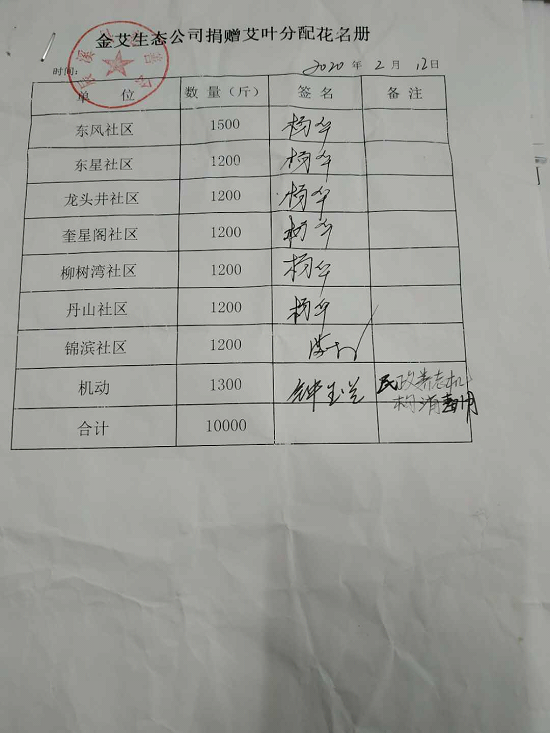 金艾生态公司捐赠艾叶分配花名册
时间: 2020 年 2 月 12日
单 位 数 量（斤） 签 名 备 注
东风社区 1500 杨华
东星社区 1200 杨华
龙头井社区 1200 杨华
奎星阁社区 1200 杨华
柳树湾社区 1200 杨华
丹山社区 1200 杨华
锦滨社区 1200
机动 1300 民政养老机
构消毒用
合计 10000